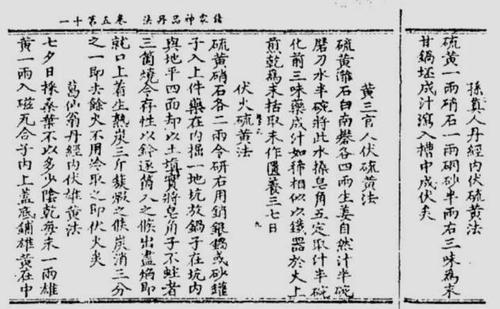 諸家神品丹法 卷五第十一
孫真人丹經內伏硫黃法
硫黃一兩硝石一兩硇砂半兩右三味為末
甘鍋坯成汁瀉入槽中成伏矣
黃三官人伏硫黃法
硫黃灘石白南礬各四兩生姜自然汁半碗
磨刀水半碗將此水搽皂角五定取汁半碗
化前三味藥成汁如稀相似以鐵器於火上
煎乾為末括取末作匱養三七日
伏火硫黃法
硫黃硝石各二兩令研右用銷銀鍋或砂罐
子入上件藥在內掘一地坑放鍋子在坑內
與地平四面却以土填實將皂角子不蛀者
三箇燒令存性以鈐逐箇入之候出盡焰即
就口上着生熟炭三斤簇煅之候炭消三分
之一即去餘火不用冷取之即伏火矣
葛仙翁丹經內伏雄黃法
七夕日採桑葉不以多少陰乾每末一兩雄
黃一兩入磁死合子內上蓋底鋪雄黃在中